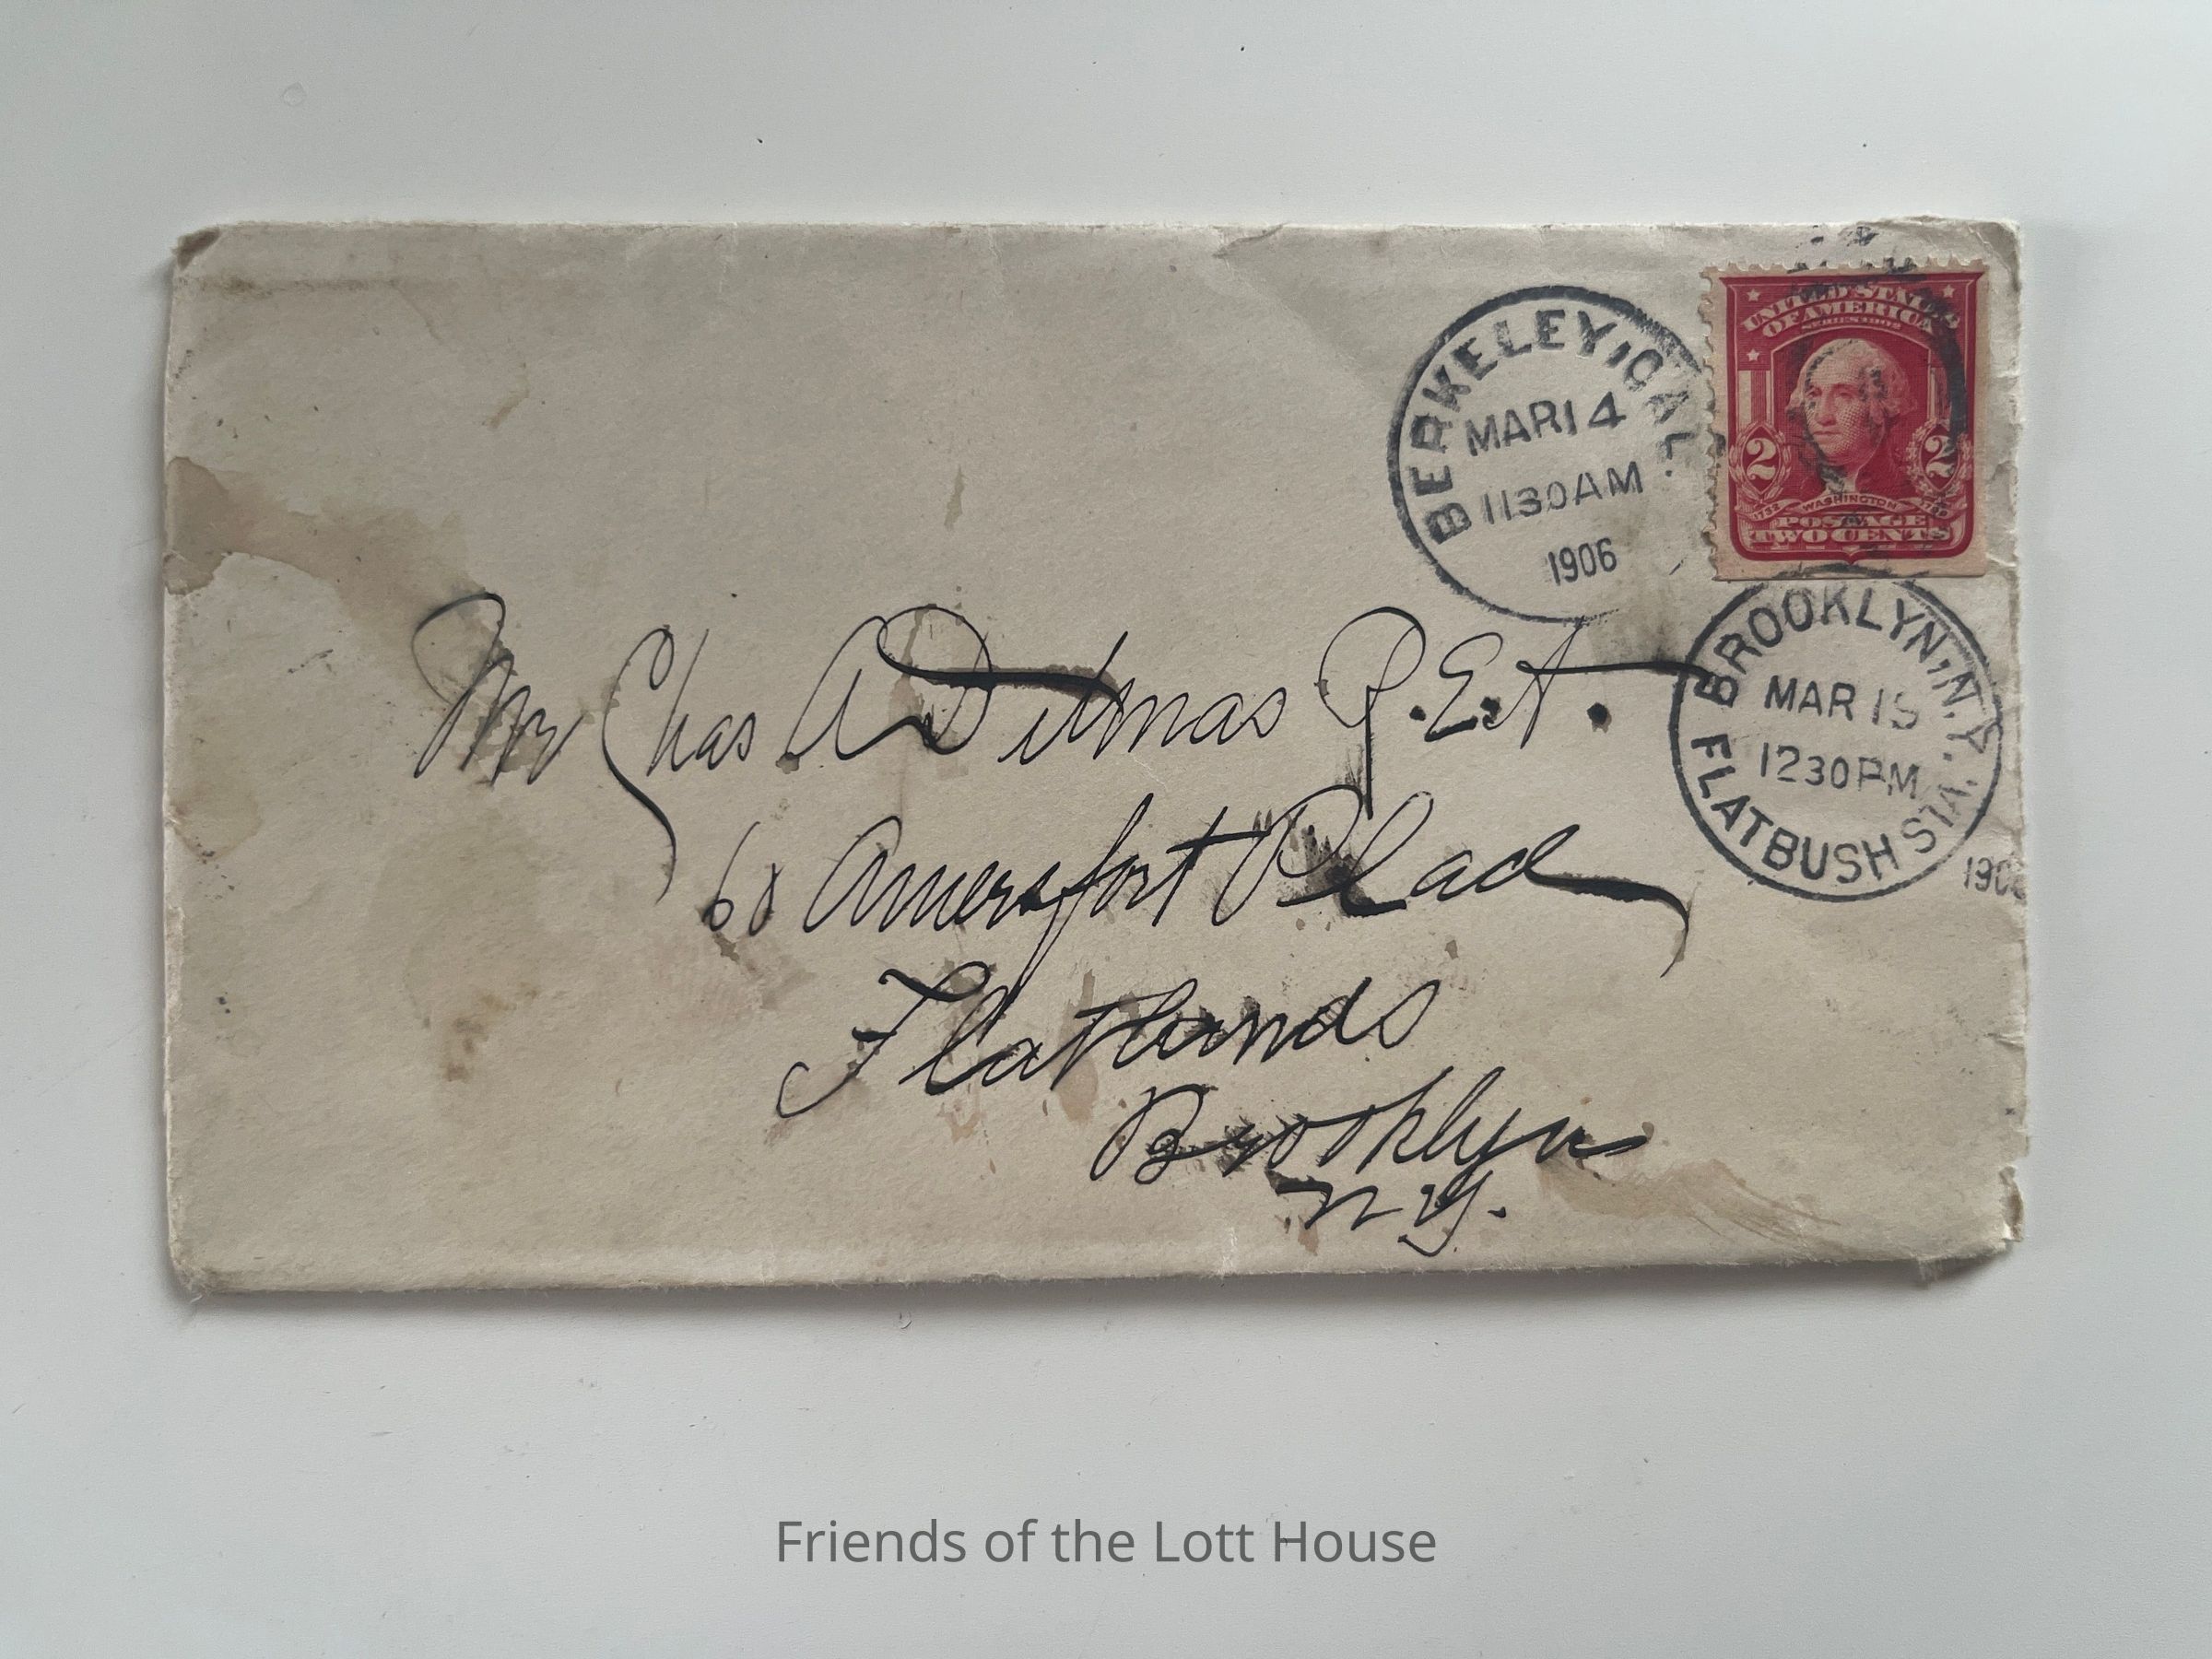 BERKELEY, CAL.
MAR 14
1130 AM
1906
UNITED STATES
OF AMERICA
SERIES 1902
2 2
1732 WASHINGTON 1799
POSTAGE
TWO CENTS
BROOKLYN, N.Y.
MAR 19
1230 PM
FLATBUSH STA.
190
Mr Chas. A Ditmas P.E.A.
60 Amersfort Place
Flatlands
Brooklyn
N.Y.
Friends of the Lott House